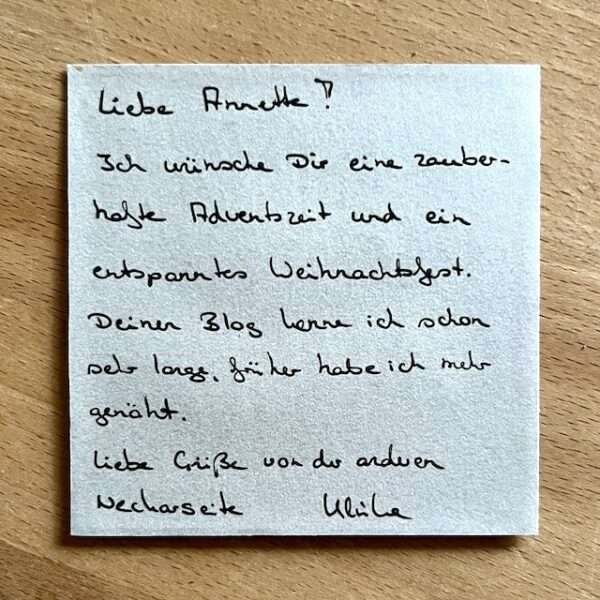 Liebe Annette!
Ich wünsche Dir eine zauber-
hafte Adventszeit und ein
entspanntes Weihnachtsfest.
Deinen Blog kenne ich schon
sehr lange, früher habe ich mehr
genäht.
Liebe Grüße von der anderen
Neckarseite Ulrike